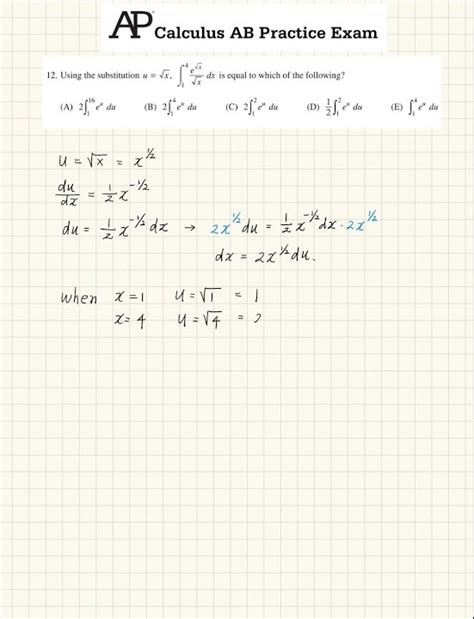 AP Calculus AB Practice Exam
12. Using the substitution u = √x, ∫₁⁴ e^√x/√x dx is equal to which of the following?
(A) 2∫₁¹⁶ eᵘ du (B) 2∫₁⁴ eᵘ du (C) 2∫₁² eᵘ du (D) 1/2 ∫₁² eᵘ du (E) ∫₁⁴ eᵘ du
u = √x = x^1/2
du/dx = 1/2 x^-1/2
du = 1/2 x^-1/2 dx → 2x^1/2 du = 1/2 x^-1/2 dx · 2x^1/2
dx = 2x^1/2 du.
when x = 1 u = √1 = 1
x = 4 u = √4 =